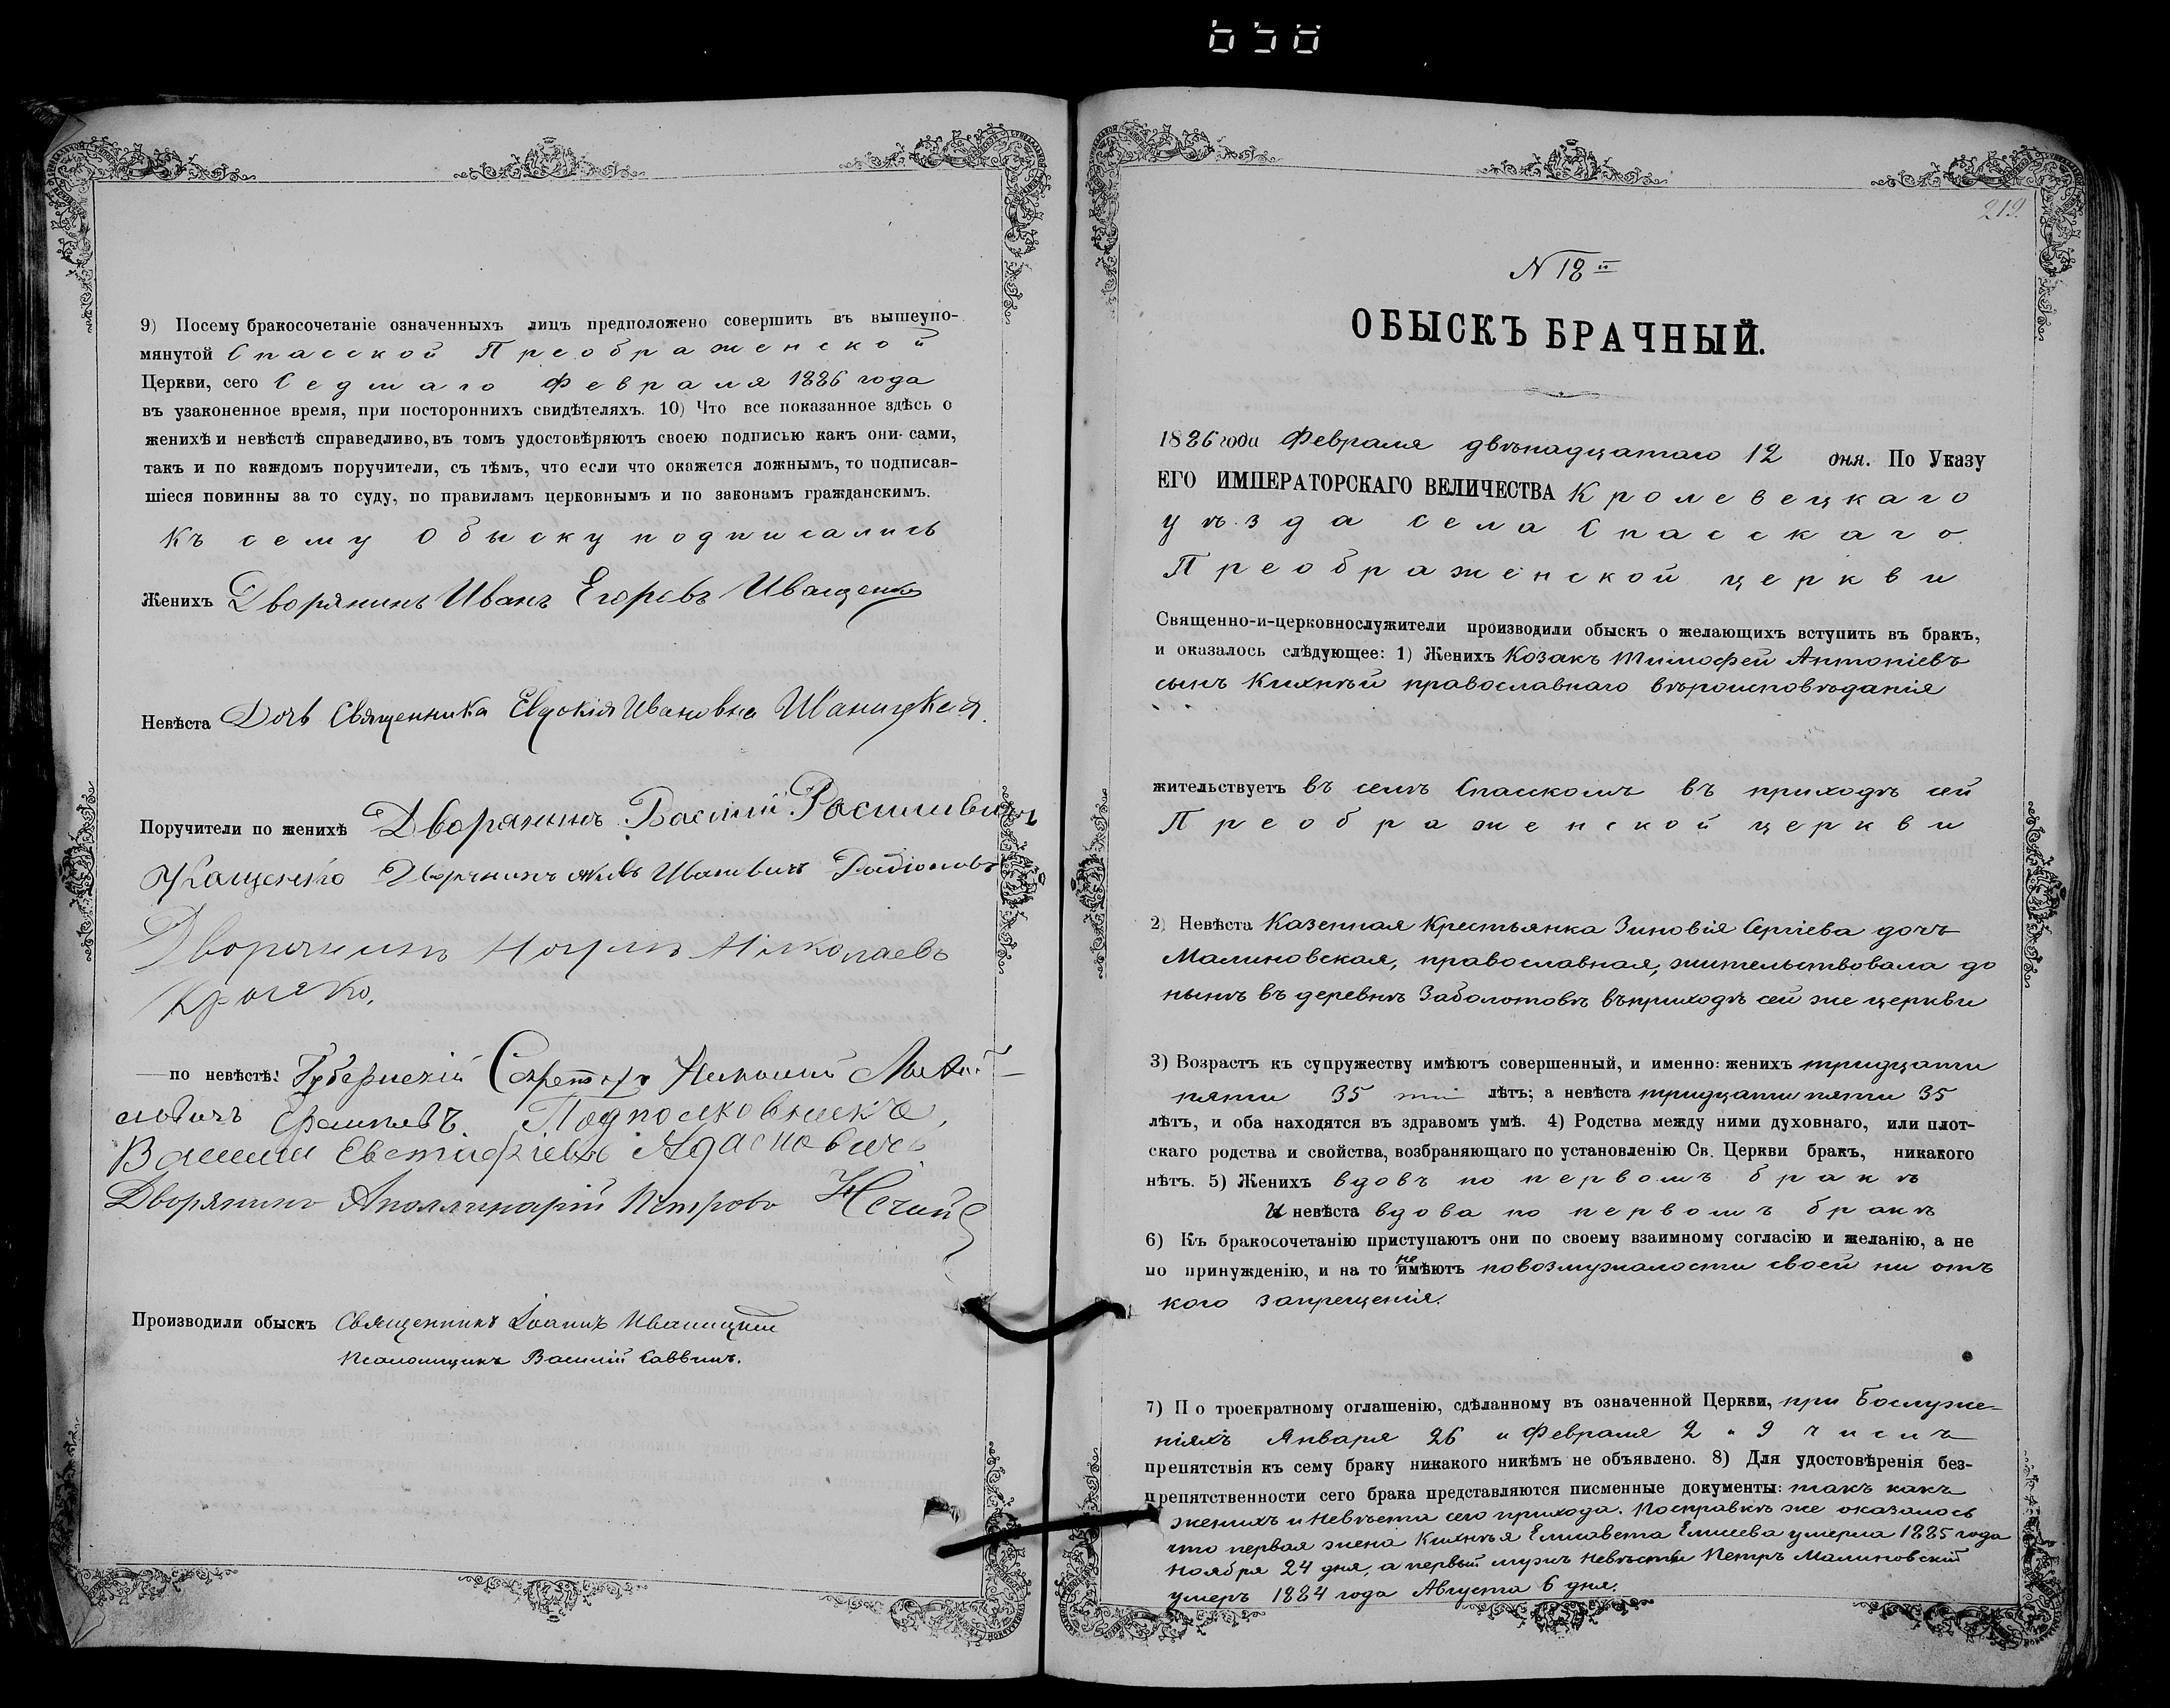 9) Посему бракосочетаніе означенныхъ лицъ предположено совершить въ вышеупо-
мянутой Спасской Преображенской
Церкви, сего Седмаго Февраля 1886 года
въ узаконенное время, при постороннихъ свидѣтеляхъ. 10) Что все показанное здѣсь о
женихѣ и невѣстѣ справедливо, въ томъ удостовѣряютъ своею подписью какъ они сами,
такъ и по каждомъ поручители, съ тѣмъ, что если что окажется ложнымъ, то подписав-
шіеся повинны за то суду, по правиламъ церковнымъ и по законамъ гражданскимъ.
Къ сему Обыску подписались
Женихъ Дворянинъ Иванъ Егоровъ Иващенко
Невѣста Дочь Священника Евдокія Ивановна Иваницкая.
Поручители по женихѣ Дворянинъ Василій Васильевичъ
Кащенко Дворянинъ Яковъ Ивановичъ Радіоновъ
Дворянинъ Николаевъ
по невѣстѣ: Губернскій Секретарь Николай
Подполковникъ
Василій Евстафіевъ Адасовичъ
Дворянинъ Аполлинарій Петровъ Нечай
Производили обыскъ Священникъ Іоаннъ Иваницкій
Псаломщикъ Василій Саввичъ.
219.
N 18й
ОБЫСКЪ БРАЧНЫЙ.
1886 года Февраля двѣнадцатаго 12 дня. По Указу
ЕГО ИМПЕРАТОРСКАГО ВЕЛИЧЕСТВА Кролевецкаго
уѣзда села Спасскаго
Преображенской церкви
Священно-и-церковнослужители производили обыскъ о желающихъ вступить въ бракъ,
и оказалось слѣдующее: 1) Женихъ Козакъ Тимофей Антоніевъ
сынъ Кихнѣй православнаго вѣроисповѣданія
жительствуетъ въ селѣ Спасскомъ въ приходѣ сей
Преображенской церкви
2) Невѣста Казенная Крестьянка Зиновія Сергіева дочь
Малиновская, православная, жительствовала до
нынѣ въ деревнѣ Заболотовѣ въ приходѣ сей же церкви
3) Возрастъ къ супружеству имѣютъ совершенный, и именно: женихъ тридцати
пяти 35 ти лѣтъ; а невѣста тридцати пяти 35
лѣтъ, и оба находятся въ здравомъ умѣ. 4) Родства между ними духовнаго, или плот-
скаго родства и свойства, возбраняющаго по установленію Св. Церкви бракъ, никакого
нѣтъ. 5) Женихъ вдовъ по первомъ бракѣ
И невѣста вдова по первомъ бракѣ
6) Къ бракосочетанію приступаютъ они по своему взаимному согласію и желанію, а не
по принужденію, и на то не имѣютъ по возмужалости своей ни отъ
кого запрещенія.
7) По троекратному оглашенію, сдѣланному въ означенной Церкви, при Богослуже-
ніяхъ Января 26 и Февраля 2 и 9 числъ
препятствія къ сему браку никакого никѣмъ не объявлено. 8) Для удостовѣренія без-
препятственности сего брака представляются писменные документы: такъ какъ
женихъ и невѣста сего прихода. По справкѣ же оказалось
что первая жена Кихнѣя Елисавета Елисеева умерла 1885 года
Ноября 24 дня, а первый мужъ невѣсты Петръ Малиновскій
умеръ 1884 года Августа 6 дня.